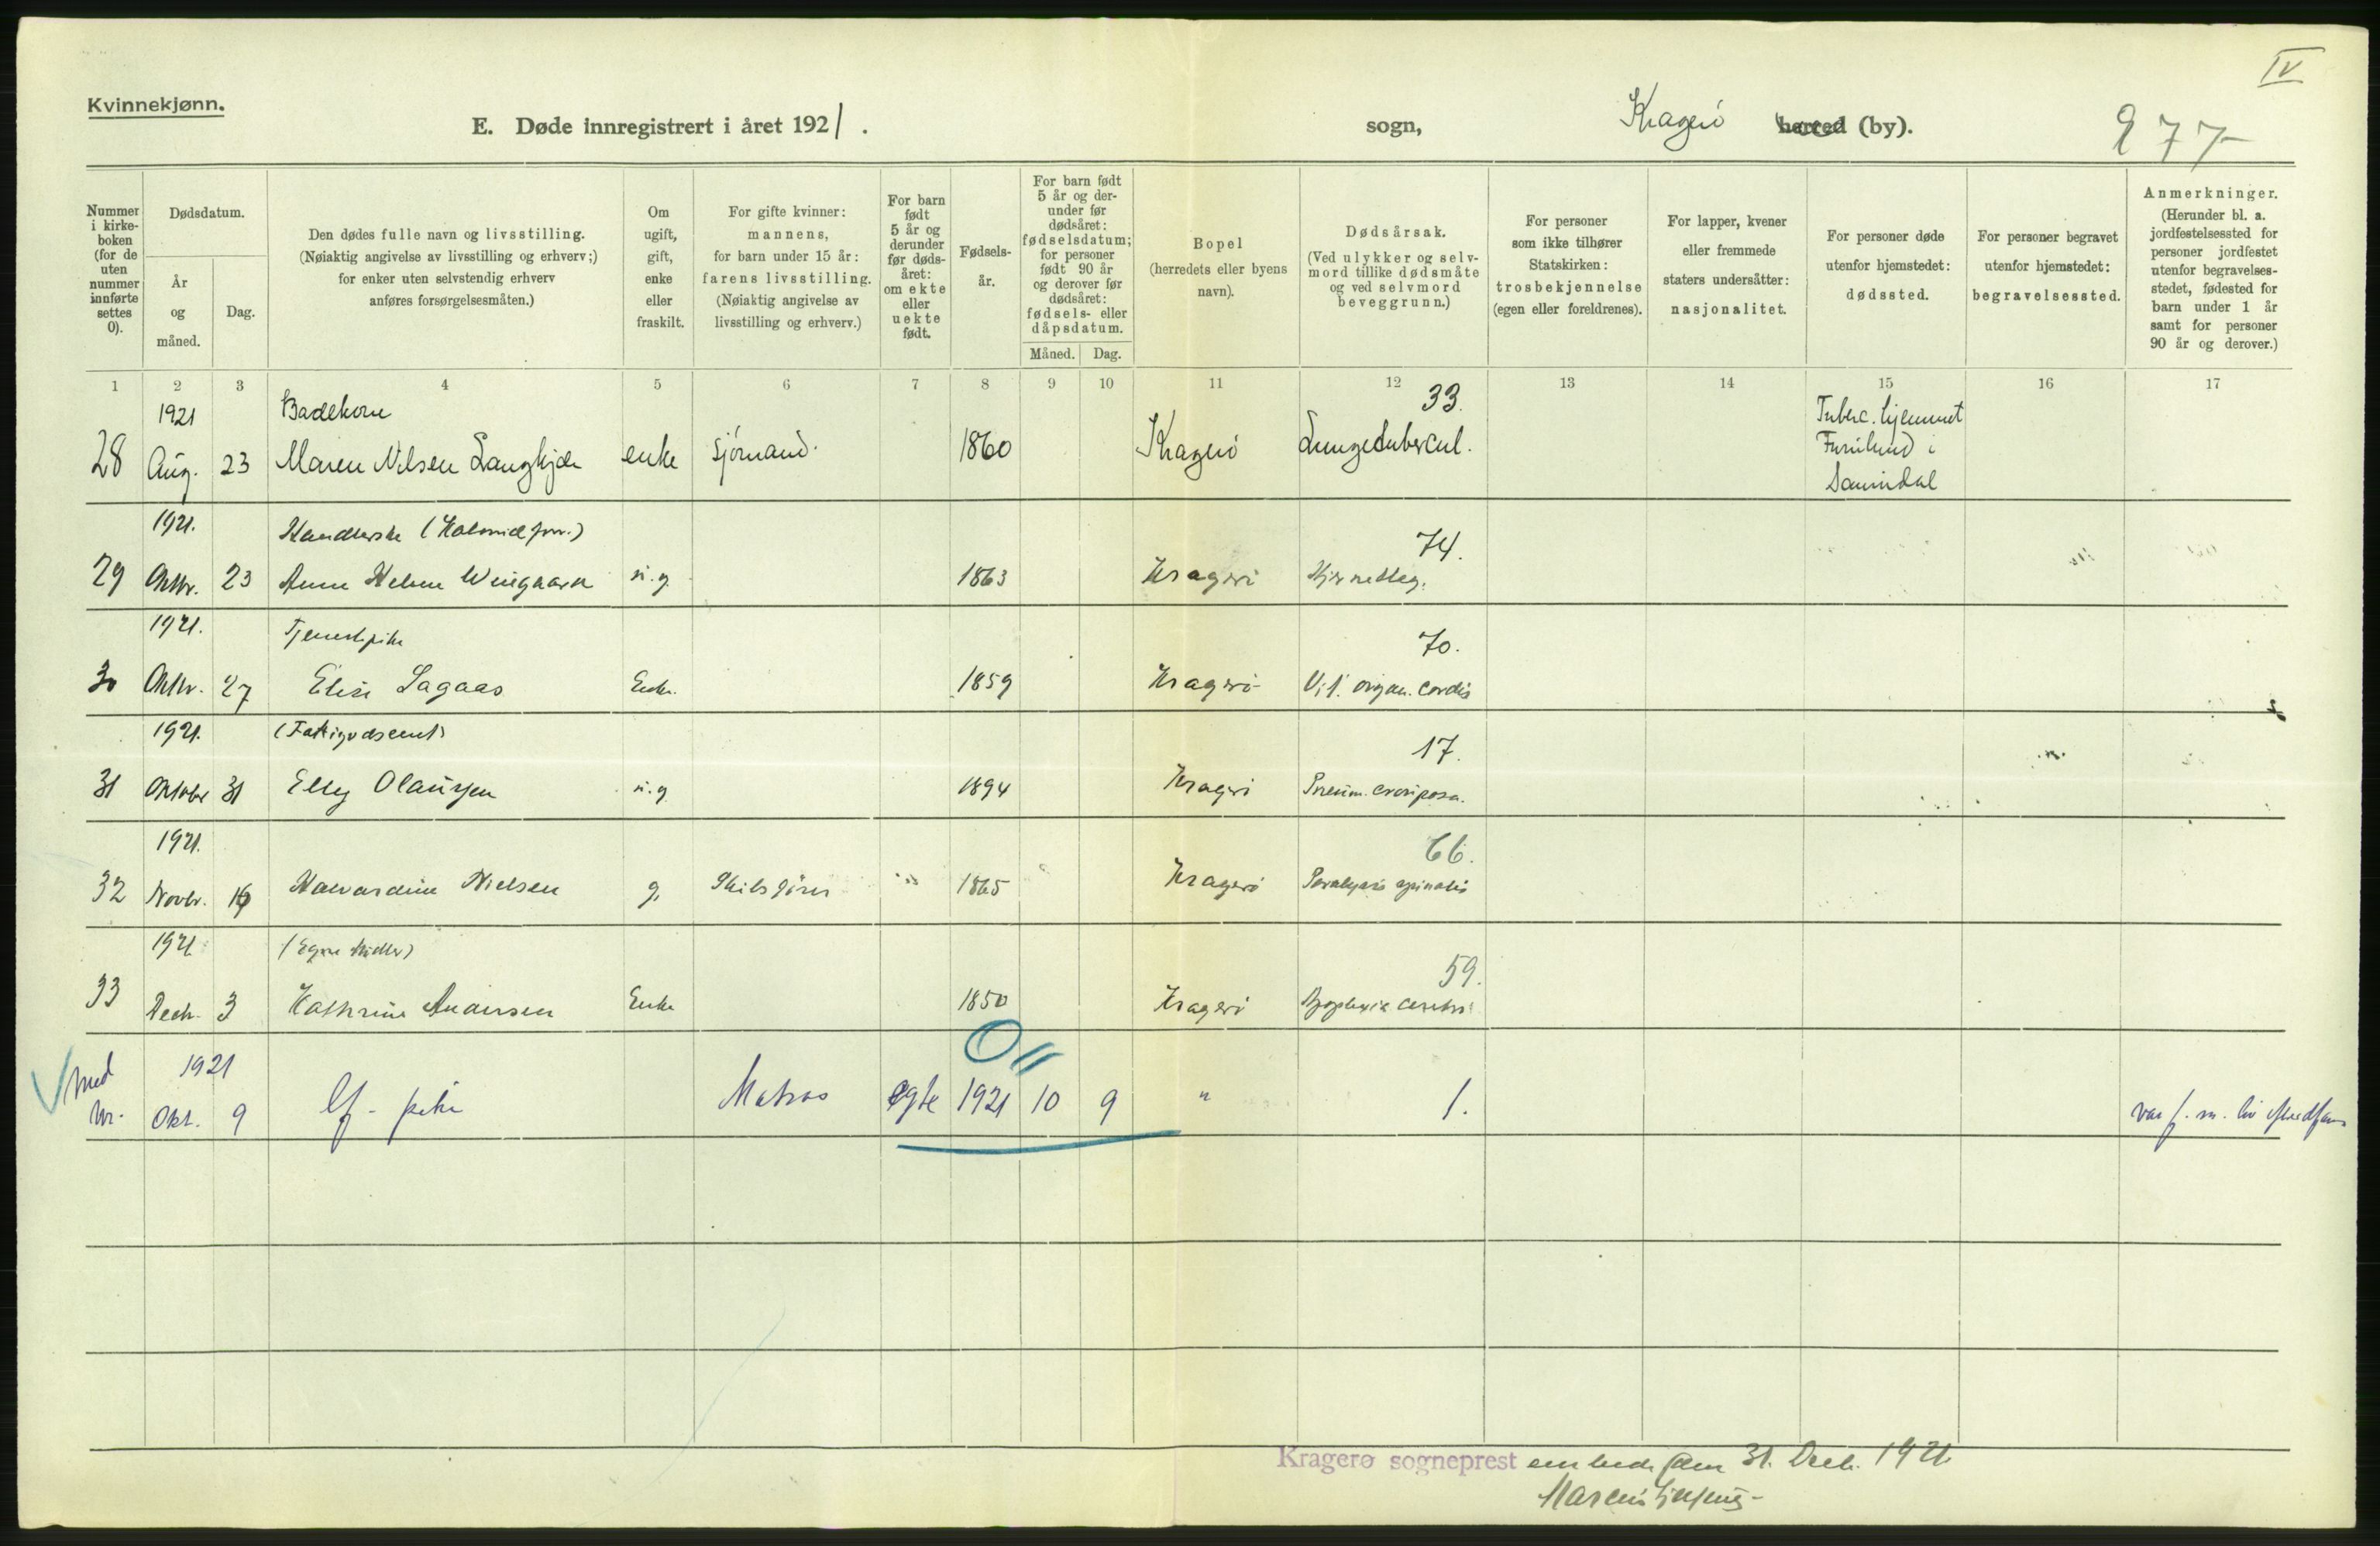 IV
Kvinnekjønn.
E. Døde innregistrert i året 1921. sogn, Kragerø herred (by). 277
Nummer i kirkeboken (for de uten nummer innførte settes 0).
Dødsdatum.
År og måned.
Dag.
Den dødes fulle navn og livsstilling.
(Nøiaktig angivelse av livsstilling og erhverv;)
for enker uten selvstendig erhverv
anføres forsørgelsesmåten.)
Om ugift, gift, enke eller fraskilt.
For gifte kvinner:
mannens,
for barn under 15 år:
farens livsstilling.
(Nøiaktig angivelse av
livsstilling og erhverv.)
For barn født 5 år og derunder før dødsåret: om ekte eller uekte født.
Fødselsår.
For barn født 5 år og derunder før dødsåret: fødselsdatum; for personer født 90 år og derover før dødsåret: fødsels- eller dåpsdatum.
Måned. Dag.
Bopel
(herredets eller byens
navn).
Dødsårsak.
(Ved ulykker og selvmord tillike dødsmåte og ved selvmord beveggrunn.)
For personer
som ikke tilhører
Statskirken:
trosbekjennelse
(egen eller foreldrenes).
For lapper, kvener
eller fremmede
staters undersåtter:
nasjonalitet.
For personer døde
utenfor hjemstedet:
dødssted.
For personer begravet
utenfor hjemstedet:
begravelsessted.
Anmerkninger.
(Herunder bl. a.
jordfestelsessted for
personer jordfestet
utenfor begravelses-
stedet, fødested for
barn under 1 år
samt for personer
90 år og derover.)
1 2 3 4 5 6 7 8 9 10 11 12 13 14 15 16 17
1921 Badekone 33. Tuberc. hjemmet
28 Aug. 23 Maren Nilsen Langkjær enke sjømand. 1860 Kragerø Lungetubercul. Furulund i
Sannidal
1921. Handlerske 74.
29 Oktbr. 23 Anna Helene Wingaard u.g. 1863 Kragerø
1921. Tjenestpike 70.
30 Oktbr. 27 Elise Lagaas Enke. 1859 Kragerø Vit. organ. cordis
1921. 17.
31 Oktober 31 Elly Olaussen u.g. 1894 Kragerø Pneum. crouposa.
1921. 66.
32 Novbr. 16 Halvardine Nielsen g. Skibsfører 1865 Kragerø Paralysis spinalis
1921 (Egne Midler) 59.
33 Decb. 3 Kathrine Andersen Enke 1850 Kragerø Apoplexia cerebri
1921
uten nr. Okt. 9 pike Matros ægte 1921 10 9 " 1.
Kragerø sogneprest embede den 31. Decb. 1921